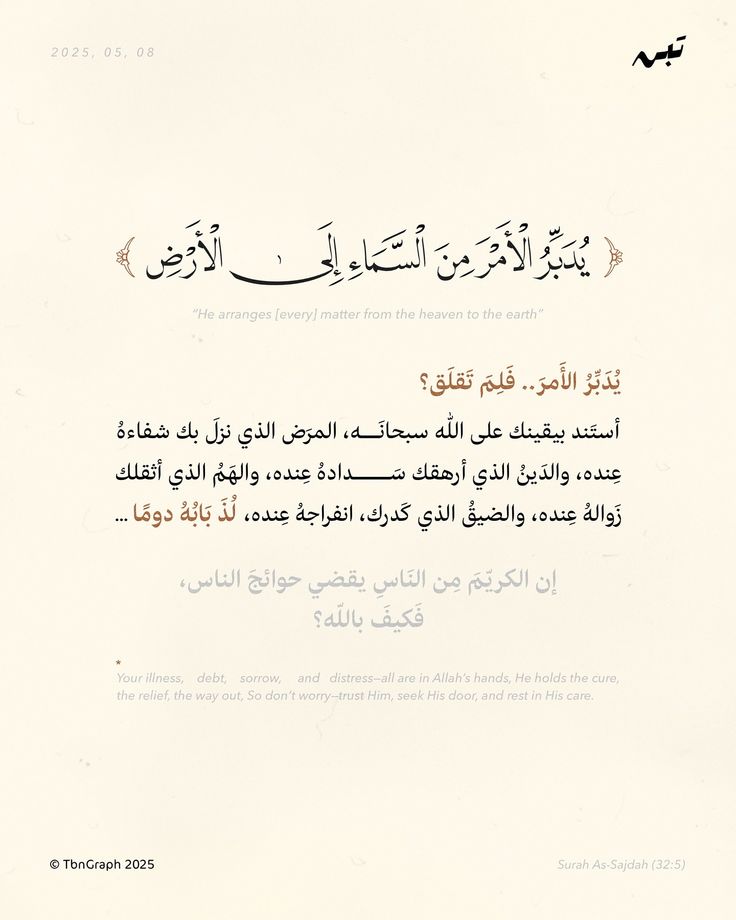 2025, 05, 08
تبن
﴿ يُدَبِّرُ الْأَمْرَ مِنَ السَّمَاءِ إِلَى الْأَرْضِ ﴾
“He arranges [every] matter from the heaven to the earth”
يُدَبِّرُ الأَمرَ.. فَلِمَ تَقلَق؟
أستَند بيقينك على الله سبحانَـــه، المرَض الذي نزلَ بك شفاءهُ
عِنده، والدَينُ الذي أرهقك سَـــــدادهُ عِنده، والهَمُ الذي أثقلك
زَوالهُ عِنده، والضيقُ الذي كَدرك، انفراجهُ عِنده، لُذَ بَابُهُ دومًا ...
إن الكريّمَ مِن النَاسِ يقضي حوائجَ الناس،
فَكيفَ باللّه؟
*
Your illness, debt, sorrow, and distress—all are in Allah’s hands, He holds the cure,
the relief, the way out, So don’t worry—trust Him, seek His door, and rest in His care.
© TbnGraph 2025
Surah As-Sajdah (32:5)